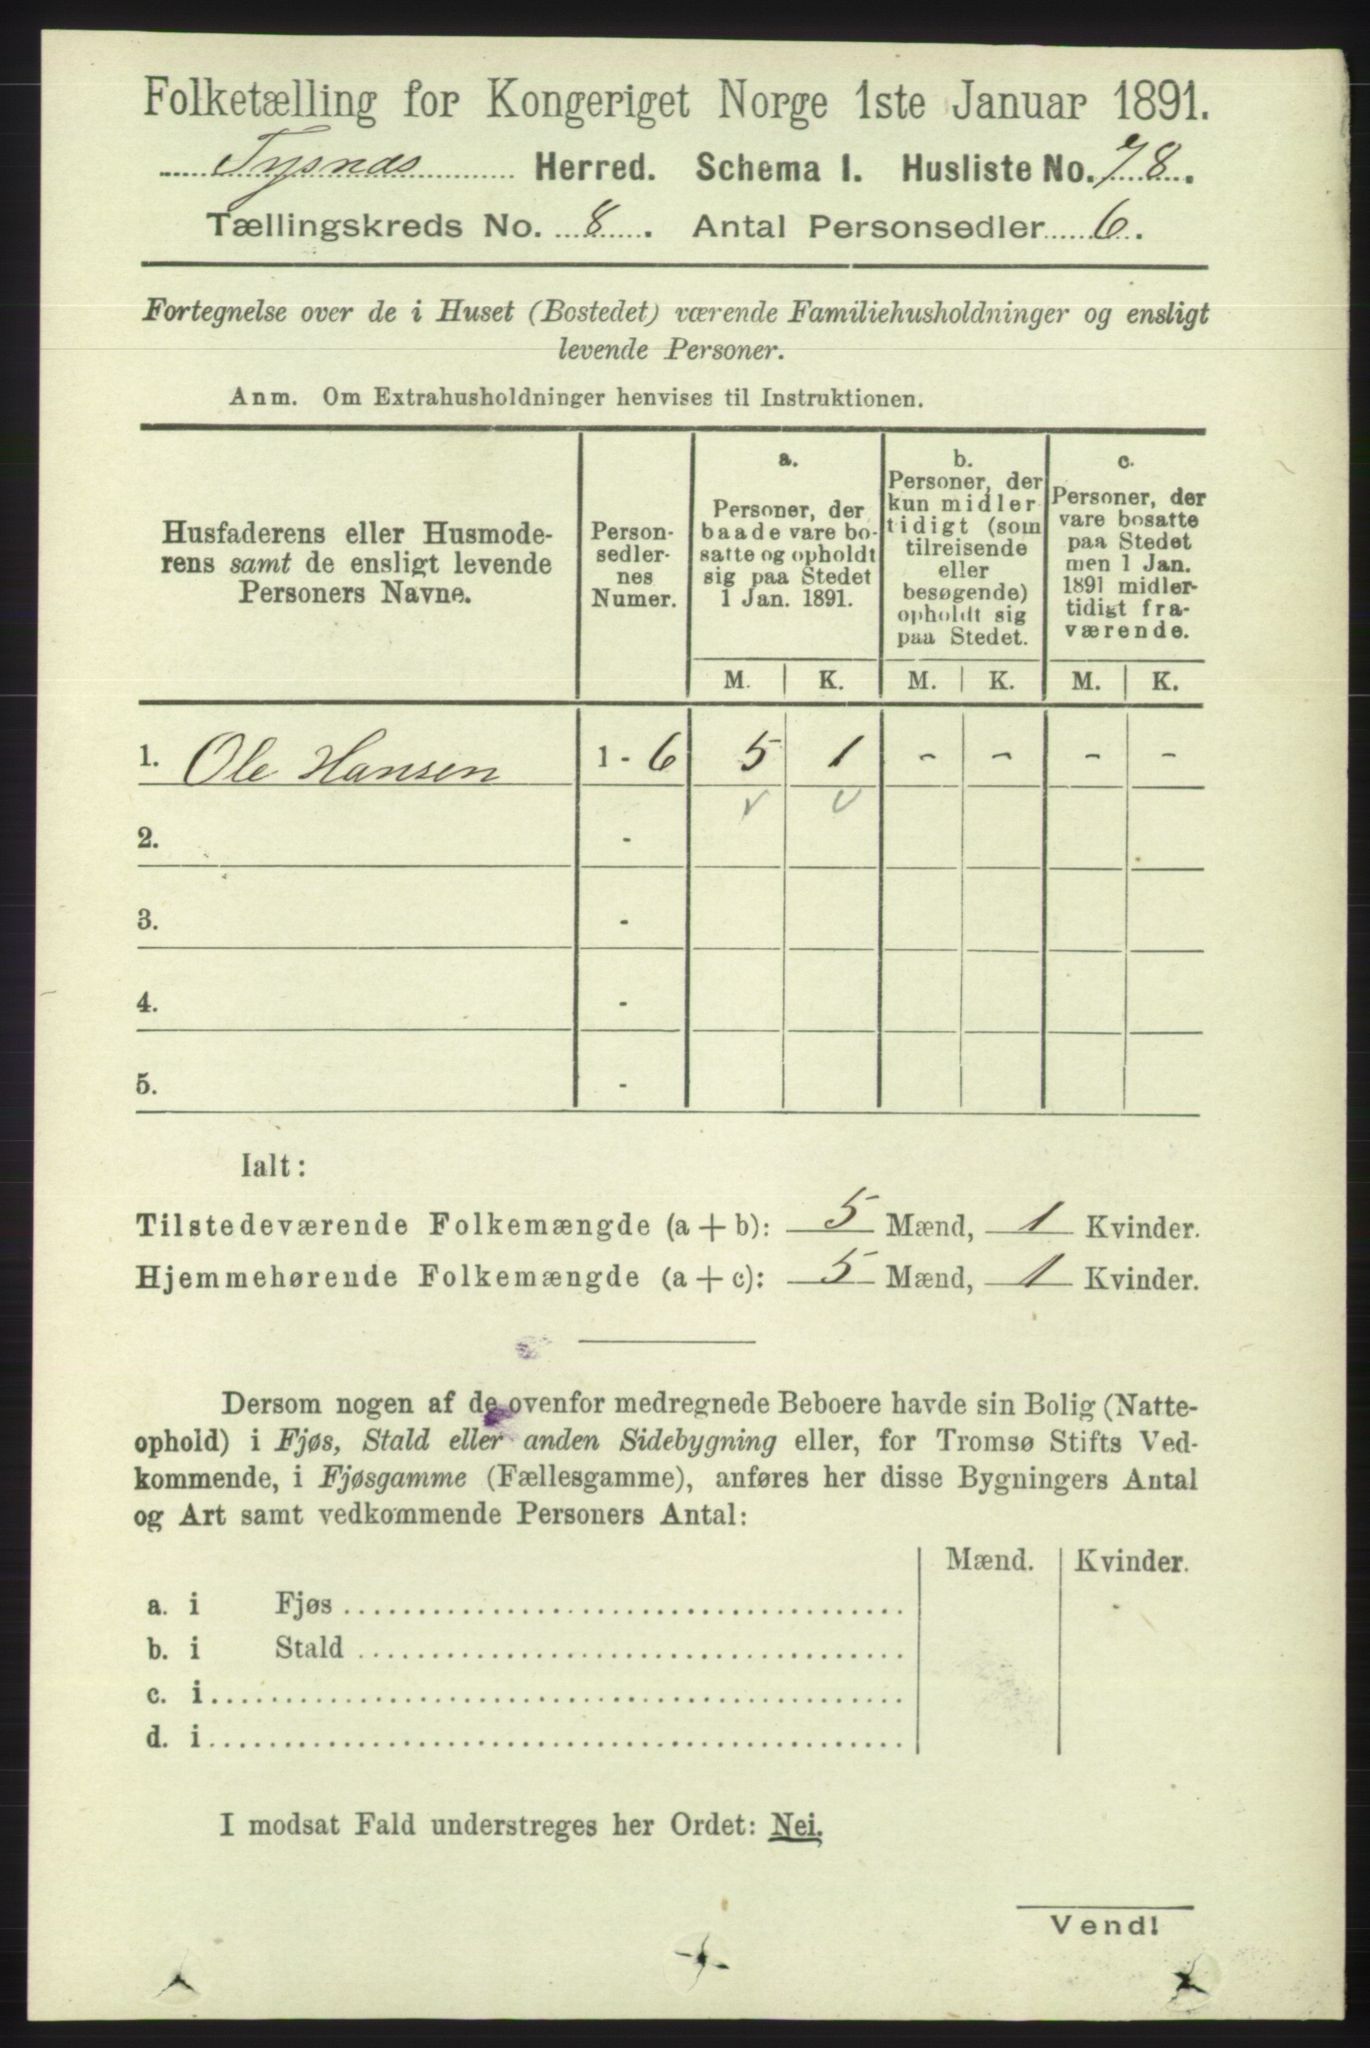 Folketælling for Kongeriget Norge 1ste Januar 1891.
Tysnæs Herred. Schema I. Husliste No. 78.
Tællingskreds No. 8. Antal Personsedler 6.
Fortegnelse over de i Huset (Bostedet) værende Familiehusholdninger og ensligt
levende Personer.
Anm. Om Extrahusholdninger henvises til Instruktionen.
Husfaderens eller Husmode-
rens samt de ensligt levende
Personers Navne.
Person-
sedler-
nes
Numer.
a.
Personer, der
baade vare bo-
satte og opholdt
sig paa Stedet
1 Jan. 1891.
b.
Personer, der
kun midler
tidigt (som
tilreisende
eller
besøgende)
opholdt sig
paa Stedet.
c.
Personer, der
vare bosatte
paa Stedet
men 1 Jan.
1891 midler-
tidigt fra-
værende.
M. K. M. K. M. K.
1. Ole Hansen 1 - 6 5 1 - - - -
2. -
3. -
4. -
5. -
Ialt:
Tilstedeværende Folkemængde (a + b): 5 Mænd, 1 Kvinder.
Hjemmehørende Folkemængde (a + c): 5 Mænd, 1 Kvinder.
Dersom nogen af de ovenfor medregnede Beboere havde sin Bolig (Natte-
ophold) i Fjøs, Stald eller anden Sidebygning eller, for Tromsø Stifts Ved-
kommende, i Fjøsgamme (Fællesgamme), anføres her disse Bygningers Antal
og Art samt vedkommende Personers Antal:
Mænd. Kvinder.
a. i Fjøs
b. i Stald
c. i
d. i
I modsat Fald understreges her Ordet: Nei.
Vend!